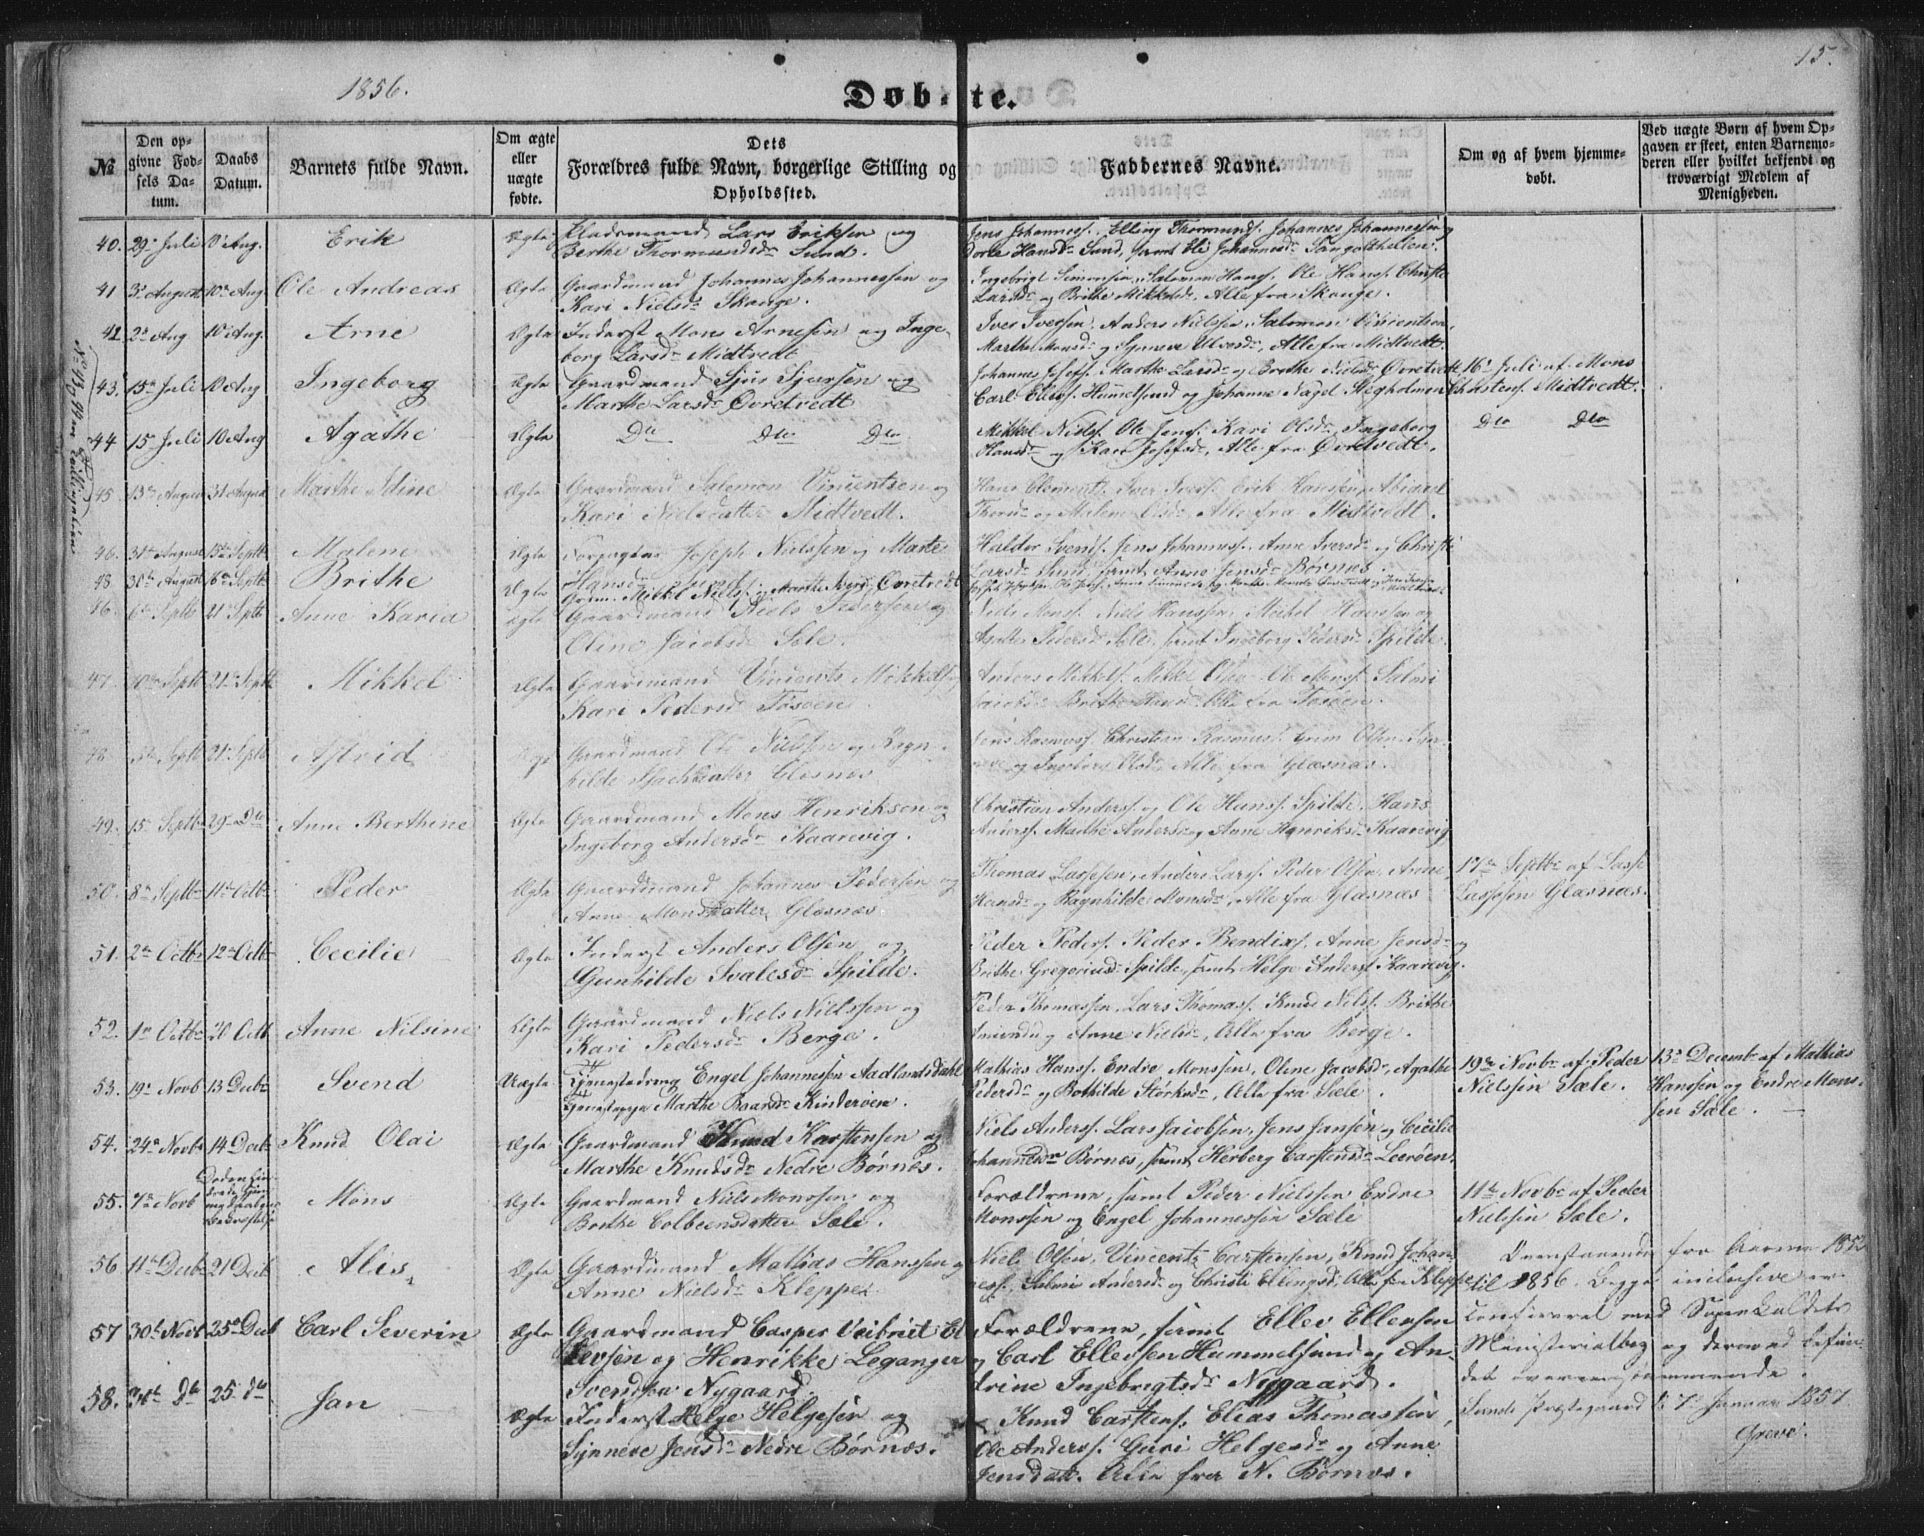 1856.
Døbte.
15.
No
Den opgivne Fødsels Datum.
Daabs Datum.
Barnets fulde Navn.
Om ægte eller uægte fødte.
Dets Forældres fulde Navn, borgerlige Stilling og Opholdssted.
Faddernes Navne.
Om og af hvem hjemmedøbt.
Ved uægte Børn af hvem Opgaven er skeet, enten Barnemoderen eller hvilket bekjendt og troværdigt Medlem af Menigheden.
40. 29 Juli 10 Aug. Erik Ægte Lars Eriksen og
Berthe Thormundsdr Sund.
Jens Johanness. Elling Thormunds. Johannes Johannessen
Dorte Hansdr Sund, samt Eli Johannesdr
41 3 August 10 Aug Ole Andreas Ægte Gaardmand Johannes Johannessen og
Kari Nielsdr Skauge.
Ingebrigt Simonsen, Salomon Hanss. Ole Hanss. Christi
Larsdr og Brithe Mikkelsdr, Alle fra Skauge.
42 2 Aug 10 Aug. Arne Ægte Inderst Mons Arnesen og Inge-
borg Larsdr Midtvedt
Iver Iversen, Anders Nielsen, Salomon Vincentsen,
Marthe Monsdr og Synneve Alle fra Midtvedt.
43. 15 Juli 10 Aug Ingeborg Ægte Gaardmand Sjur Sjursen og
Marthe Larsdr Øvretvedt
Johannes Josefs. Marthe Larsdr og Brithe Nielsdr Øvretvedt,
Carl Ellefs. Hummelsund og Johanne Nagel Stegholmen
16 Juli af Mons
Christens. Midtvedt.
44 15 Juli 10 Aug Agathe Ægte Dto Dto Dto
Mikkel Niels. Ole Jens. Kari Olsdr, Ingeborg
Hansdr og Kari Josefsdr, Alle fra Øvretvedt.
Dto Dto
No 43 og 44 ere Tvillingebørn
45 13 August 31 August Marthe Adine Ægte Gaardmand Salomon Vincentsen og
Kari Nielsdatter Midtvedt.
Hans Clements. Iver Ivers. Erik Hanssen, Abigael
og Malene Olsdr, Alle fra Midtvedt.
46. 31 August Septb Malene Ægte Forpagter Joseph Nielssen og Marte
Hansdr Sund
Haldor Svends. Jens Johanness. Anne Iversdr og Christi
Larsdr Sund samt Anne Jensdr Børnæs.
48 30 August Septb Brithe Ægte Gaardm. Mikkel Niels. og Marthe Øvretvedt
46. 6 Septb 21 Septb Anne Karia Ægte Gaardmand Niels Pedersen og
Oline Jacobsdr Sæle.
Niels Monss. Niels Hanssen, Mikkel Hanssen og
Agathe Pedersdr Sæle, samt Ingeborg Pedersdr Spilde.
47. Septb 21 Septb Mikkel Ægte Gaardmand Vincents Mikkels. og
Kari Pedersdr Tøsøen.
Anders Mikkels. Mikkel Olsen, Ole Monss. Salmi
Jacobsdr Brithe Alle fra Tøsøen.
48. Septb 21 Septb Astrid Gaardmand Ole Nielsen og Ragn-
hilde Glesnæs.
Jens Rasmuss. Christian Rasmuss. Grim Olsen,
og Ingeborg Olsdr, Alle fra Glæsnæs.
49. 15 Septb 29 Dto Anne Berthine Ægte Gaardmand Mons Henriksen og
Ingeborg Andersdr Kaarevig.
Christian Anderss. og Ole Hanss. Spilde. Hans
Anderss. Marthe Andersdr og Anne Henriksdr Kaarevig
50. 8 Septb 11 Octb Peder Ægte Gaardmand Johannes Pedersen og
Anne Monsdatter Glesnæs.
Thomas Lassesen, Anders Larss. Peder Olsen, Anne
Hansdr og Ragnhilde Monsdr, Alle fra Glæsnæs
17 Septb af Lasse
Lassesen Glæsnæs.
51. 2 Octb 12 Octb Cecilie Ægte Inderst Anders Olsen og
Gunhilde Svalesdr Spilde.
Peder Peders. Peder Bendixs. Anne Jensdr og
Brithe Gregoriusdr Spilde, samt Helge Anders. Kaarevig.
52. 1 Octb Octb Anne Nilsine Ægte Gaardmand Niels Nielssen og
Kari Pedersdr Berge.
Peder Thomassen, Lars Thomass. Knud Niels. Brithe
og Anne Nielsdr, Alle fra Berge.
53. 19 Novb 13 Decbr Svend Uægte Tjenestedreng Engel Johannessen Aadlandsdahl
Tjenestepige Marthe Baardsdr Kinderøen.
Mathias Hanss. Endre Monssen, Oline Jacobsdr, Agathe
Pedersdr og Bothilde Størksdr, Alle fra Sæle.
19 Novbr af Peder
Nielssen Sæle.
13 Decembr af Mathias
Hanssen og Endre Mons-
sen Sæle.
54. 24 Novbr 14 Decbr Knud Olai Ægte Gaardmand Knud Karstensen og
Marthe Knudsdr Nedre Børnæs.
Niels Anderss. Lars Jacobsen, Jens Jansen og Cecilie
Johannesdr Børnæs, samt Herborg Carstensdr Leerøen.
55. 7 Novb Møns Ægte Gaardmand Niels Monssen og
Berthe Colbeensdatter Sæle.
Forældrene, samt Peder Nielssen Endre
Monssen og Engel Johannessen Sæle
11 Novbr af Peder
Nielssen Sæle.
56 11 Decbr 21 Decb Alis Ægte Gaardmand Mathias Hanssen og
Anne Nielsdr Kleppe.
Niels Olsen, Vincents Carstensen, Knud Johan-
ness. Salmi Andersdr og Christi Ellingsdr Alle fra Kleppe
57 30 Novb 25 Decb Carl Severin Ægte Gaardmand Casper Veibriet El-
levsen og Henrikke Leganger
Svendsen Nygaard.
Forældrene, samt Ellev Ellevsen
og Carl Ellevsen Hummelsund og An-
drine Ingebrigtsdr Nygaard.
58. Dto 25 dto Jan Ægte Inderst Helge Helgesen og
Synneve Jensdr Nedre Børnæs.
Knud Carstens. Elias Thomassen,
Ole Anderss. Guri Helgesdr og Anne
Jensdatt. Alle fra N. Børnæs.
Ovenstaaende fra Aarene 185
til 1856. Begge inclusive er
confereret med Sognekaldets
Ministerialbog og dermed befun-
det overeensstemmende.
Sunds Præstegaard d. 7 Januar 1857
Greve.